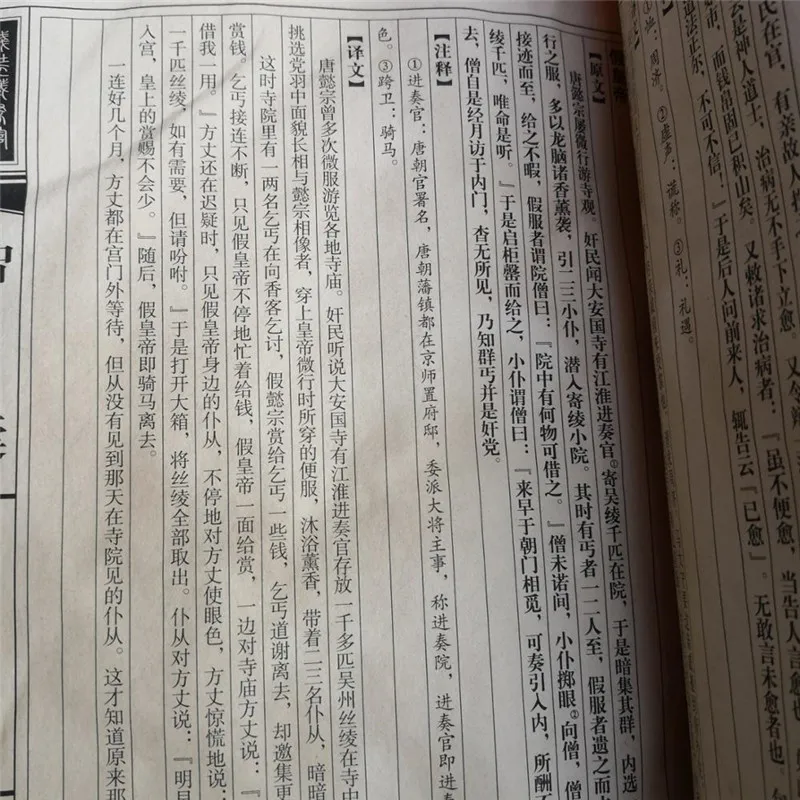 民在官，有亲故人
云是神人道士，治病无不手下立愈。又令
市，而钱帛固已积山矣。又敕诸求治病者：『虽不便愈，当告人言愈也，
道法正尔，不可不信。』于是后人问前来人，辄告云『已愈』。无敢言未愈者也。
周济。②虚声：谎称。③礼：礼遇。
假皇帝
【原文】
唐懿宗屡微行游寺观。奸民闻大安国寺有江淮进奏官①寄吴绫千匹在院，于是暗集其群，内选
行之服，多以龙脑诸香薰袭，引二三小仆，潜入寄绫小院。其时有丐者一二人至，假服者遗之而去
接迹而至，给之不暇，假服者谓院僧曰：『院中有何物可借之。』僧未诺间，小仆掷眼②向僧，僧
绫千匹，唯命是听。』于是启柜罄而给之，小仆谓僧曰：『来早于朝门相觅，可奏引入内，所酬不
去，僧自是经月访于内门，查无所见，乃知群丐并是奸党。
【注释】
①进奏官：唐朝官署名，唐朝藩镇都在京师置府邸，委派大将主事，称进奏院，进奏官即进奏
色。③跨卫：骑马。
【译文】
唐懿宗曾多次微服游览各地寺庙。奸民听说大安国寺有江淮进奏官存放一千多匹吴州丝绫在寺中
挑选党羽中面貌长相与懿宗相像者，穿上皇帝微行时所穿的便服，沐浴薰香，带着二三名仆从，暗暗
这时寺院里有一两名乞丐在向香客乞讨，假懿宗赏给乞丐一些钱，乞丐道谢离去，却邀集更
赏钱。乞丐接连不断，只见假皇帝不停地忙着给钱，假皇帝一面给赏，一边对寺庙方丈说：『
借我一用。』方丈还在迟疑时，只见假皇帝身边的仆从，不停地对方丈使眼色，方丈惊慌地说：
一千匹丝绫，如有需要，但请吩咐。』于是打开大箱，将丝绫全部取出。仆从对方丈说：『明早
入宫，皇上的赏赐不会少。』随后，假皇帝即骑马离去。
一连好几个月，方丈都在宫门外等待，但从没有见到那天在寺院见的仆从。这才知道原来那